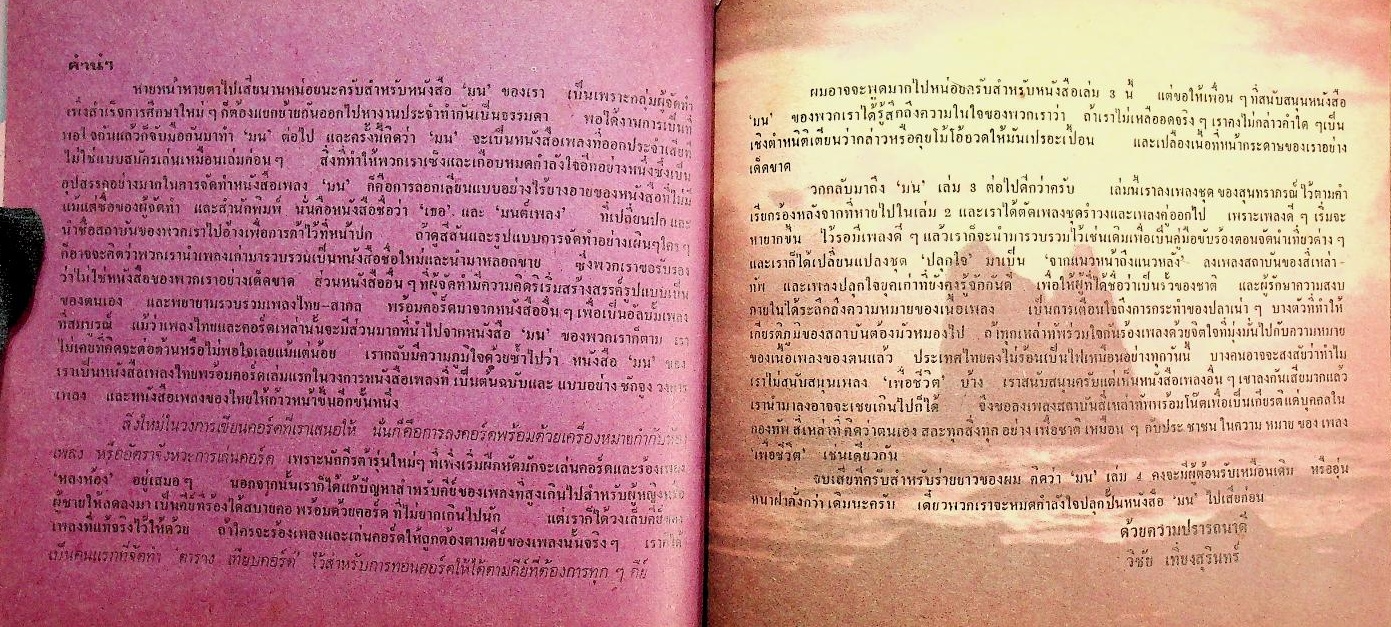 คำนำ
หายหน้าหายตาไปเสียนานหน่อยนะครับสำหรับหนังสือ 'มน' ของเรา เป็นเพราะกลุ่มผู้จัดทำ
เพิ่งสำเร็จการศึกษาใหม่ ๆ ก็ต้องแยกย้ายกันออกไปหางานประจำทำกันเป็นธรรมดา พอได้งานการเป็นที่
พอใจกันแล้วก็จับมือกันมาทำ 'มน' ต่อไป และครั้งนี้คิดว่า 'มน' จะเป็นหนังสือเพลงที่ออกประจำเสียที
ไม่ใช่แบบสมัครเล่นเหมือนเล่มก่อน ๆ สิ่งที่ทำให้พวกเราเซ็งและเกือบหมดกำลังใจอีกอย่างหนึ่งซึ่งเป็น
อุปสรรคอย่างมากในการจัดทำหนังสือเพลง 'มน' ก็คือการลอกเลียนแบบอย่างไร้ยางอายของหนังสือที่ไม่มี
แม้แต่ชื่อของผู้จัดทำ และสำนักพิมพ์ นั่นคือหนังสือชื่อว่า 'เธอ' และ 'มนต์เพลง' ที่เปลี่ยนปก และ
นำชื่อสถาบันของพวกเราไปอ้างเพื่อการค้าไว้ที่หน้าปก ถ้าดูสีสันและรูปแบบการจัดทำอย่างเผินๆใคร ๆ
ก็อาจจะคิดว่าพวกเรานำเพลงเก่ามารวบรวมเป็นหนังสือชื่อใหม่และนำมาหลอกขาย ซึ่งพวกเราขอรับรอง
ว่าไม่ใช่หนังสือของพวกเราอย่างเด็ดขาด ส่วนหนังสืออื่น ๆ ที่ผู้จัดทำมีความคิดริเริ่มสร้างสรรค์รูปแบบเป็น
ของตนเอง และพยายามรวบรวมเพลงไทย-สากล พร้อมคอร์ดมาจากหนังสืออื่น ๆ เพื่อเป็นอัลบั้มเพลง
ที่สมบูรณ์ แม้ว่าเพลงไทยและคอร์ดเหล่านั้นจะมีส่วนมากที่นำไปจากหนังสือ 'มน' ของพวกเราก็ตาม เรา
ไม่เคยที่คิดจะต่อต้านหรือไม่พอใจเลยแม้แต่น้อย เรากลับมีความภูมิใจด้วยซ้ำไปว่า หนังสือ 'มน' ของ
เราเป็นหนังสือเพลงไทยพร้อมคอร์ดเล่มแรกในวงการหนังสือเพลงที่ เป็นต้นฉบับและ แบบอย่าง ชักจูง วงการ
เพลง และหนังสือเพลงของไทยให้ก้าวหน้าขึ้นอีกขั้นหนึ่ง
สิ่งใหม่ในวงการเขียนคอร์ดที่เราเสนอให้ นั่นก็คือการลงคอร์ดพร้อมด้วยเครื่องหมายกำกับห้อง
เพลง หรืออัตราจังหวะการเล่นคอร์ด เพราะนักกีตาร์รุ่นใหม่ๆ ที่เพิ่งเริ่มฝึกหัดมักจะเล่นคอร์ดและร้องเพลง
'หลงห้อง' อยู่เสมอ ๆ นอกจากนั้นเราก็ได้แก้ปัญหาสำหรับคีย์ของเพลงที่สูงเกินไปสำหรับผู้หญิงหรือ
ผู้ชายให้ลดลงมา เป็นคีย์ที่ร้องได้สบายคอ พร้อมด้วยคอร์ด ที่ไม่ยากเกินไปนัก แต่เราก็ได้วงเล็บคีย์ของ
เพลงที่แท้จริงไว้ให้ด้วย ถ้าใครจะร้องเพลงและเล่นคอร์ดให้ถูกต้องตามคีย์ของเพลงนั้นจริง ๆ เราก็ได้
เป็นคนแรกที่จัดทำ 'ตาราง เทียบคอร์ด' ไว้สำหรับการทอนคอร์ดให้ได้ตามคีย์ที่ต้องการทุก ๆ คีย์
ผมอาจจะพูดมากไปหน่อยครับสำหรับหนังสือเล่ม 3 นี้ แต่ขอให้เพื่อน ๆ ที่สนับสนุนหนังสือ
'มน' ของพวกเราได้รู้สึกถึงความในใจของพวกเราว่า ถ้าเราไม่เหลืออดจริง ๆ เราคงไม่กล่าวคำใด ๆเป็น
เชิงตำหนิติเตียนว่ากล่าวหรือคุยโม้โอ้อวดให้มันเปรอะเปื้อน และเปลืองเนื้อที่หน้ากระดาษของเราอย่าง
เด็ดขาด
วกกลับมาถึง 'มน' เล่ม 3 ต่อไปดีกว่าครับ เล่มนี้เราลงเพลงชุด ของสุนทราภรณ์ ไว้ตามคำ
เรียกร้องหลังจากที่หายไปในเล่ม 2 และเราได้ตัดเพลงชุดรำวงและเพลงคู่ออกไป เพราะเพลงดี ๆ เริ่มจะ
หายากขึ้น ไว้รอมีเพลงดี ๆ แล้วเราก็จะนำมารวบรวมไว้เช่นเดิมเพื่อเป็นคู่มือขับร้องตอนจัดนำเที่ยวต่าง ๆ
และเราก็ได้เปลี่ยนแปลงชุด 'ปลุกใจ' มาเป็น 'จากแนวหน้าถึงแนวหลัง' ลงเพลงสถาบันของสี่เหล่า-
ทัพ และเพลงปลุกใจยุคเก่าที่ยังคงรู้จักกันดี เพื่อให้ผู้ที่ได้ชื่อว่าเป็นรั้วของชาติ และผู้รักษาความสงบ
ภายในได้ระลึกถึงความหมายของเนื้อเพลง เป็นการเตือนใจถึงการกระทำของปลาเน่า ๆ บางตัวที่ทำให้
เกียรติภูมิของสถาบันต้องมัวหมองไป ถ้าทุกเหล่าทัพร่วมใจกันร้องเพลงด้วยจิตใจที่มุ่งมั่นไปกับความหมาย
ของเนื้อเพลงของตนแล้ว ประเทศไทยคงไม่ร้อนเป็นไฟเหมือนอย่างทุกวันนี้ บางคนอาจจะสงสัยว่าทำไม
เราไม่สนับสนุนเพลง 'เพื่อชีวิต' บ้าง เราสนับสนุนครับแต่เห็นหนังสือเพลงอื่น ๆ เขาลงกันเสียมากแล้ว
เรานำมาลงอาจจะเชยเกินไปก็ได้ จึงขอลงเพลงสถาบันสี่เหล่าทัพพร้อมโน๊ตเพื่อเป็นเกียรติแด่บุคคลใน
กองทัพ สี่เหล่าที่ คิดว่าตนเอง สละทุกสิ่งทุก อย่าง เพื่อชาติ เหมือน ๆ กับประ ชาชน ในความ หมาย ของ เพลง
'เพื่อชีวิต' เช่นเดียวกัน
จบเสียทีครับสำหรับร่ายยาวของผม คิดว่า 'มน' เล่ม 4 คงจะมีผู้ต้อนรับเหมือนเดิม หรืออุ่น
หนาฝาคั่งกว่า เดิมนะครับ เดี๋ยวพวกเราจะหมดกำลังใจปลุกปั้นหนังสือ 'มน' ไปเสียก่อน
ด้วยความปรารถนาดี
วิชัย เที่ยงสุรินทร์